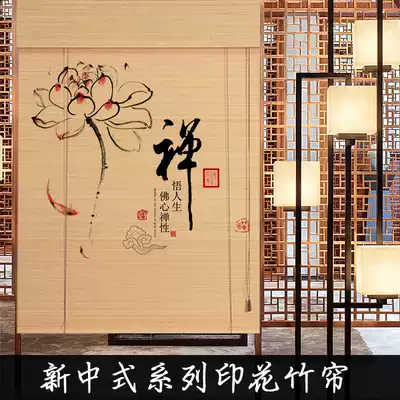 禅
悟人生
佛心禅性
新中式系列印花竹帘